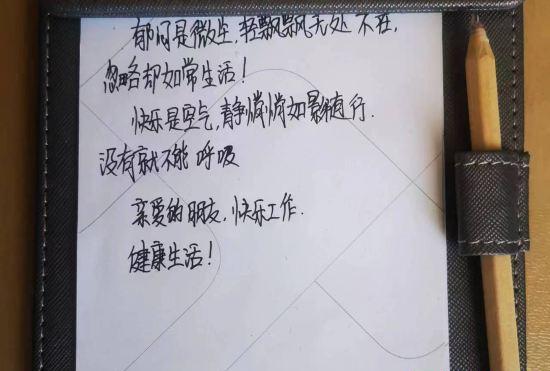 郁闷是微尘,轻飘飘无处不在,
忽略却如常生活!
快乐是空气,静悄悄如影随行.
没有就不能呼吸
亲爱的朋友,快乐工作.
健康生活!